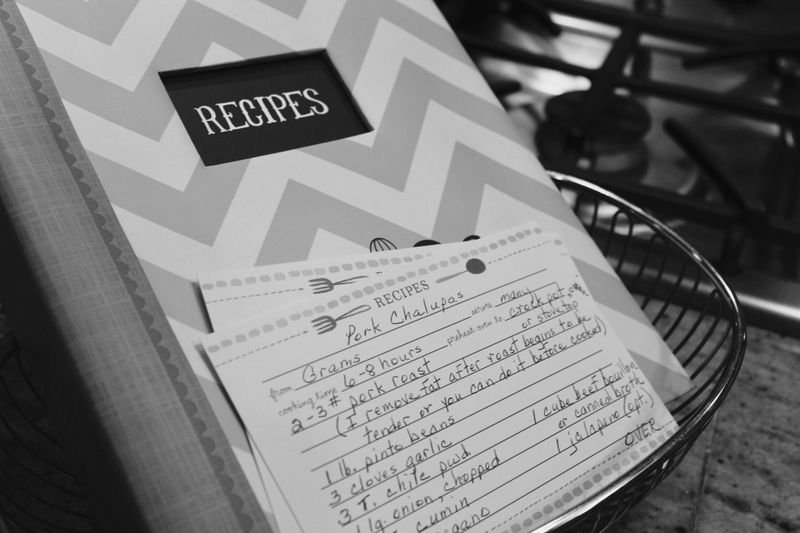 RECIPES
RECIPES
Pork Chalupas
from Grams serves many
cooking time 6-8 hours preheat oven to crock pot,
or stove top
2-3# pork roast
(I remove fat after roast begins to be
tender or you can do it before cooked)
1 lb. pinto beans
3 cloves garlic 1 cube beef bouillon
3 T. chile pwd. or canned broth
1 lg. onion, chopped 1 jalapeno (opt.)
cumin OVER